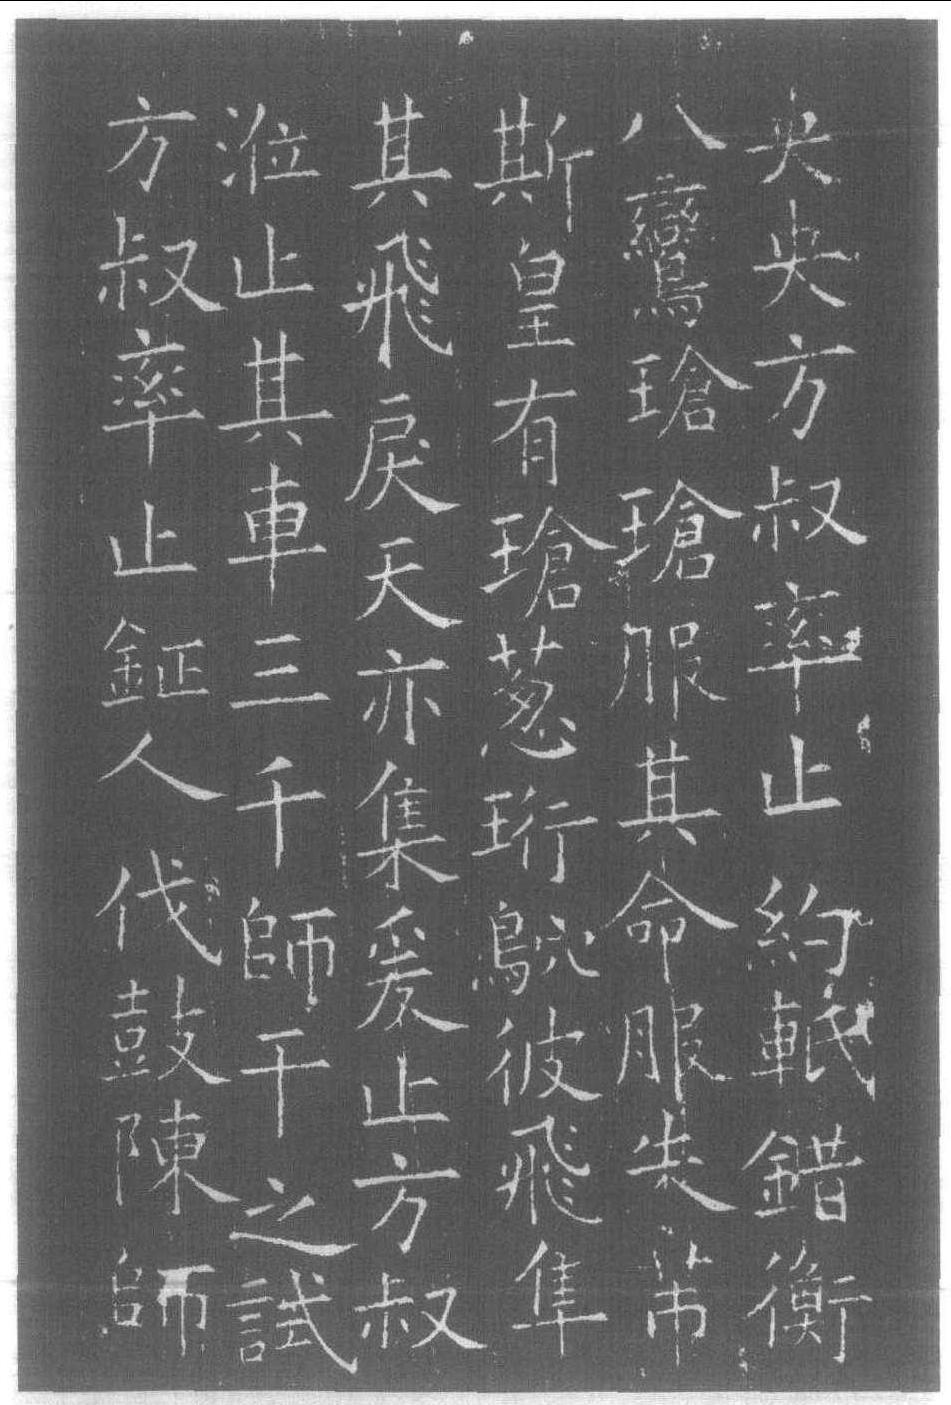 央央方叔率止約軝錯衡
八鸞瑲瑲服其命服朱芾
斯皇有瑲葱珩鴥彼飛隼
其飛戾天亦集爰止方叔
涖止其車三千師干之試
方叔率止鉦人伐鼓陳師